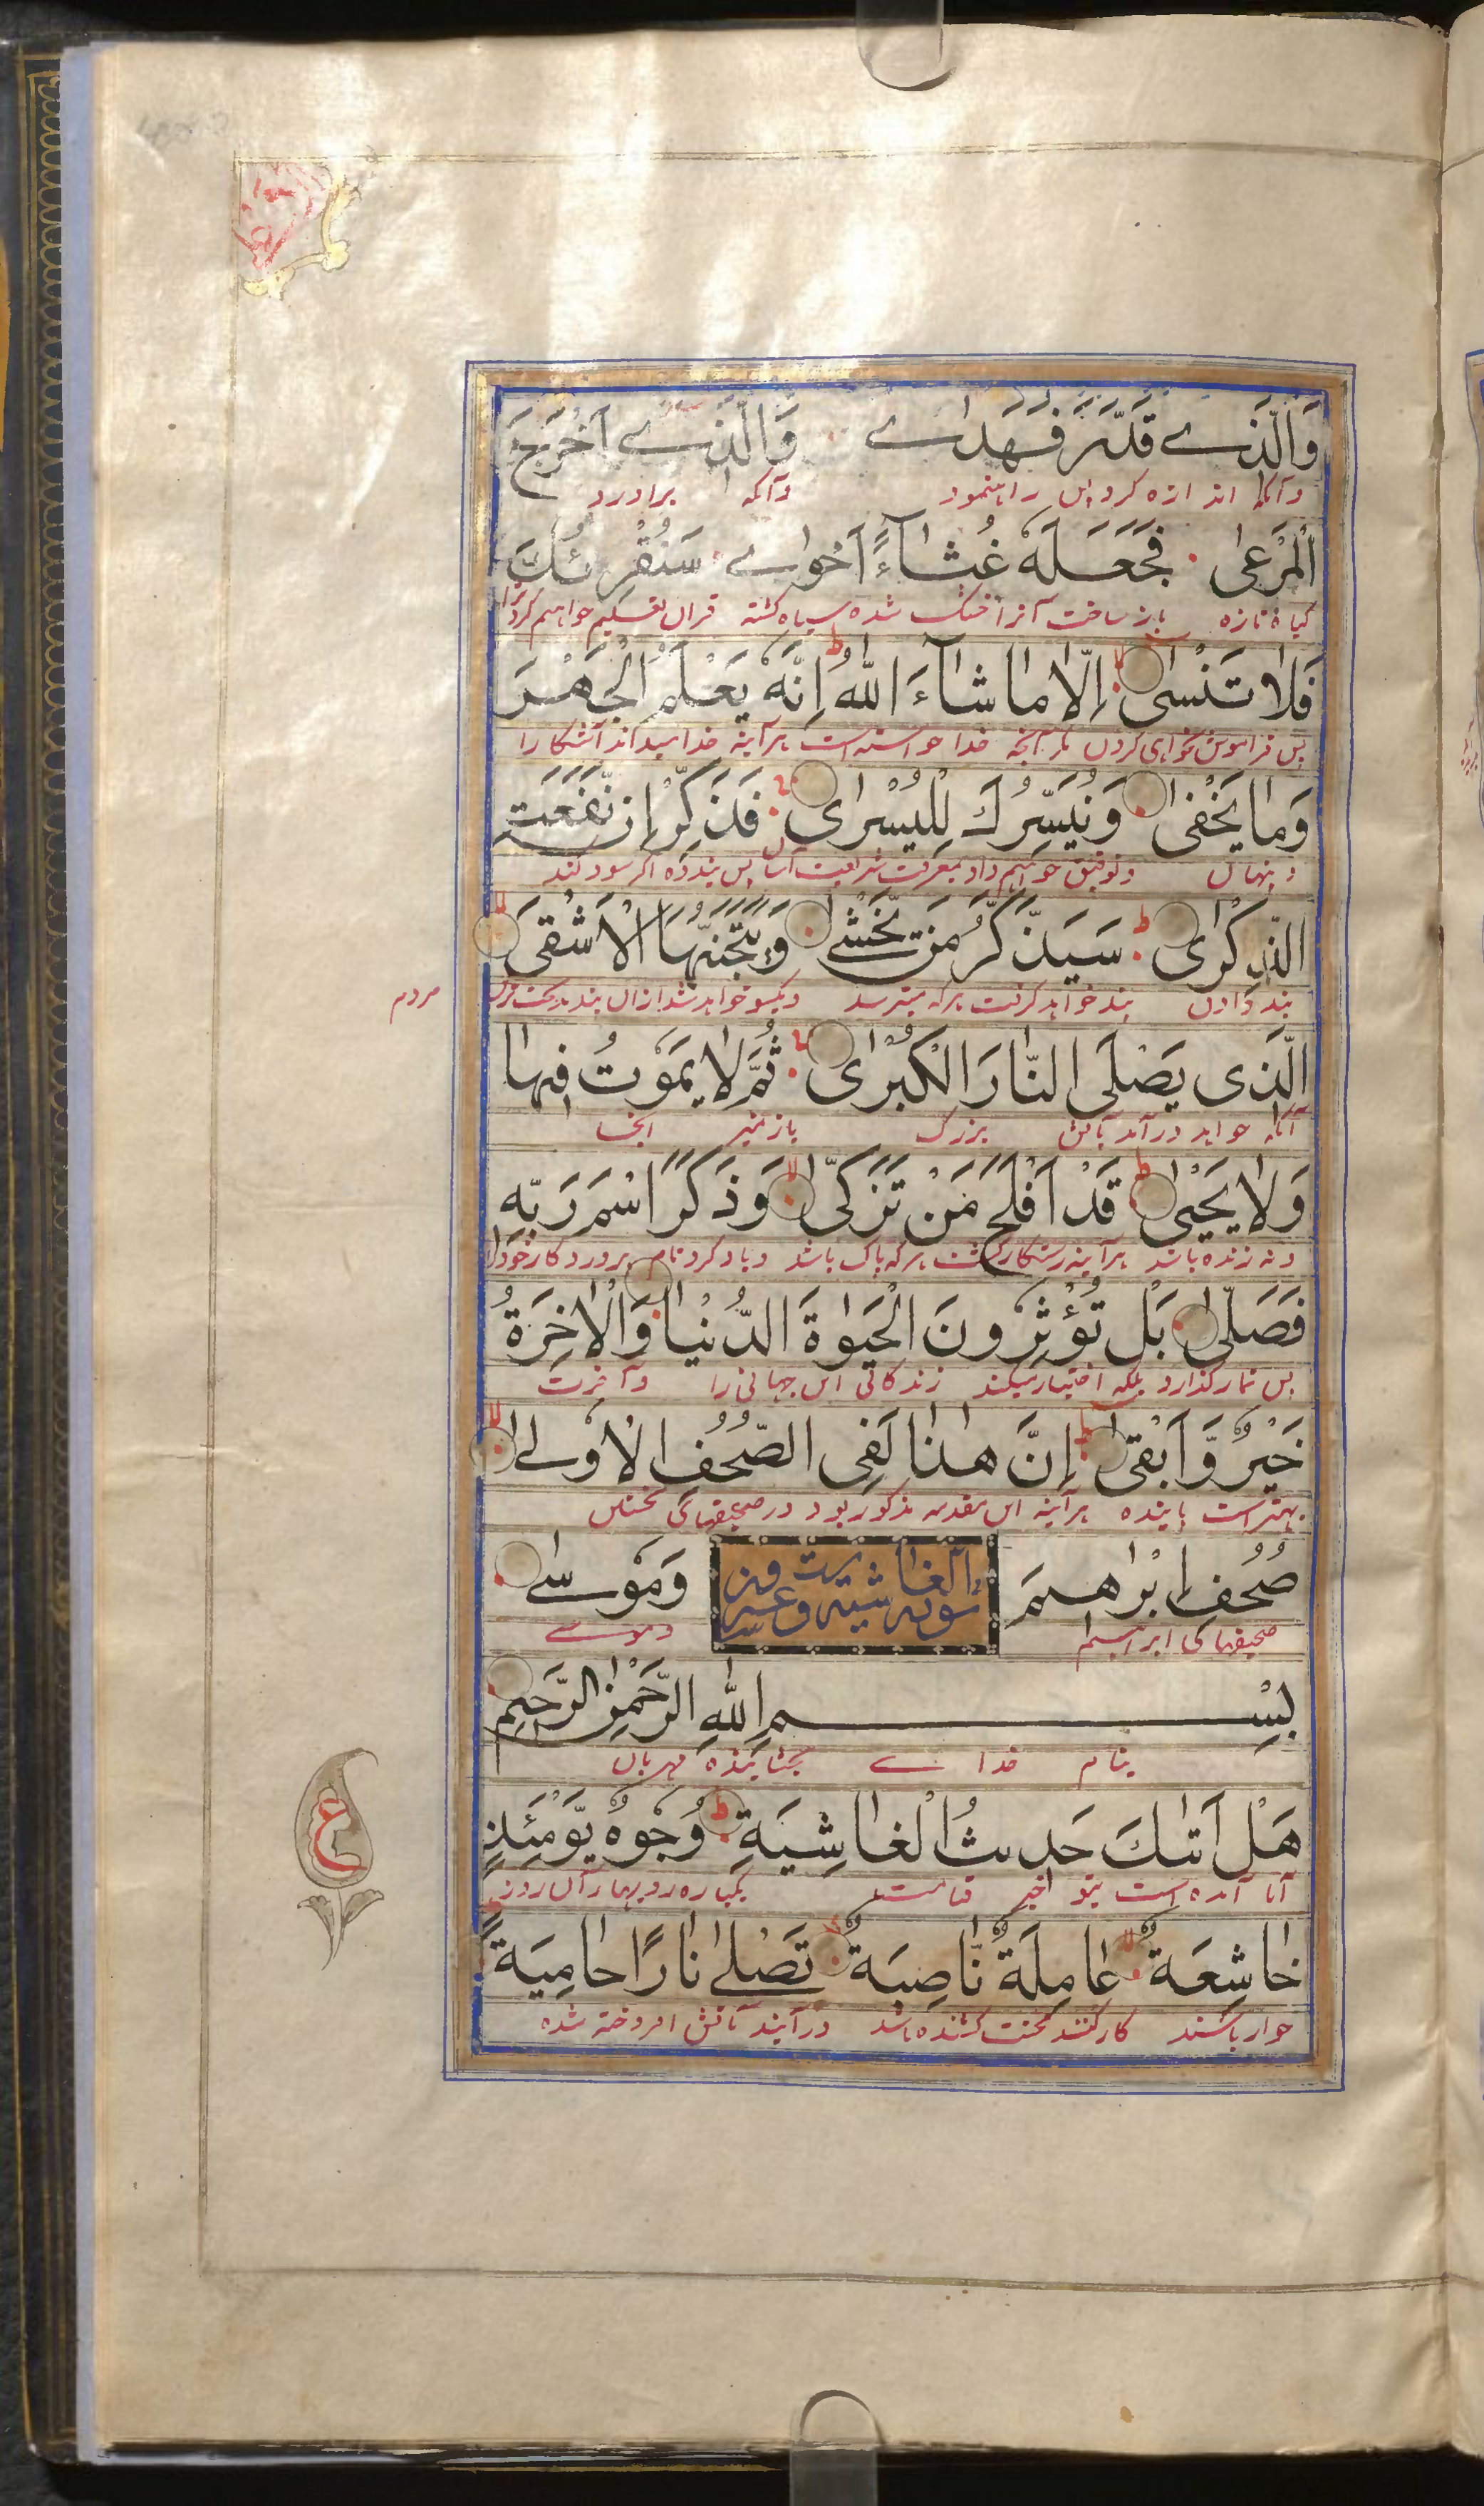 وَالَّذِے قَدَّرَ فَهَدٰے وَالَّذِے اَخْرَجَ
وآنکه اندازه کرد پس راه نمود وآنکه برآورد
الْمَرْعٰى فَجَعَلَهٗ غُثَآءً اَحْوٰے سَنُقْرِئُكَ
گیاه تازه باز ساخت آنرا خشک شده سیاه گشته قران تعلیم خواهیم کرد ترا
فَلَا تَنْسٰى اِلَّا مَا شَآءَ اللّٰهُ اِنَّهٗ يَعْلَمُ الْجَهْرَ
پس فراموش نخواهی کردن مگر آنچه خدا خواسته است هرآینه خدا میداند آشکارا
وَمَا يَخْفٰى وَنُيَسِّرُكَ لِلْيُسْرٰى فَذَكِّرْ اِنْ نَّفَعَتِ
و پنهان وتوفیق خواهیم داد بمعرفت شریعت آسان پس پند ده اگر سود کند
الذِّكْرٰى سَيَذَّكَّرُ مَنْ يَّخْشٰے وَيَتَجَنَّبُهَا الْاَشْقَى
پند دادن پند خواهد گرفت هرکه میترسد ویکسو خواهد شد ازان پند بدبخت ترین مردم
الَّذِى يَصْلَى النَّارَ الْكُبْرٰى ثُمَّ لَا يَمُوْتُ فِيْهَا
آنکه خواهد درآمد بآتش بزرگ باز نمیرد آنجا
وَلَا يَحْيٰى قَدْ اَفْلَحَ مَنْ تَزَكّٰى وَذَكَرَ اسْمَ رَبِّهٖ
ونه زنده باشد هرآینه رستگار گشت هرکه پاک باشد ویاد کرد نام پروردگار خود را
فَصَلّٰى بَلْ تُؤْثِرُونَ الْحَيٰوةَ الدُّنْيَا وَالْاٰخِرَةُ
پس نماز گذارد بلکه اختیار میکنید زندگانی این جهانی را وآخرت
خَيْرٌ وَّاَبْقٰى اِنَّ هٰذَا لَفِى الصُّحُفِ الْاُوْلٰے
بهتر است پاینده هرآینه این مقدمه مذکور بود در صحیفهای نخستین
صُحُفِ اِبْرٰهِيْمَ وَمُوْسٰے
صحیفهای ابراهیم وموسے
بِسْمِ اللّٰهِ الرَّحْمٰنِ الرَّحِيْمِ
بنام خداے بخشاینده مهربان
هَلْ اَتٰىكَ حَدِيثُ الْغَاشِيَةِ وُجُوْهٌ يَّوْمَئِذٍ
آیا آمده است بتو خبر قیامت یکپاره رویها آن روز
خَاشِعَةٌ عَامِلَةٌ نَّاصِبَةٌ تَصْلٰى نَارًا حَامِيَةً
خوار باشند کارکننده محنت کشنده باشد درآیند بآتش افروخته شده
ع